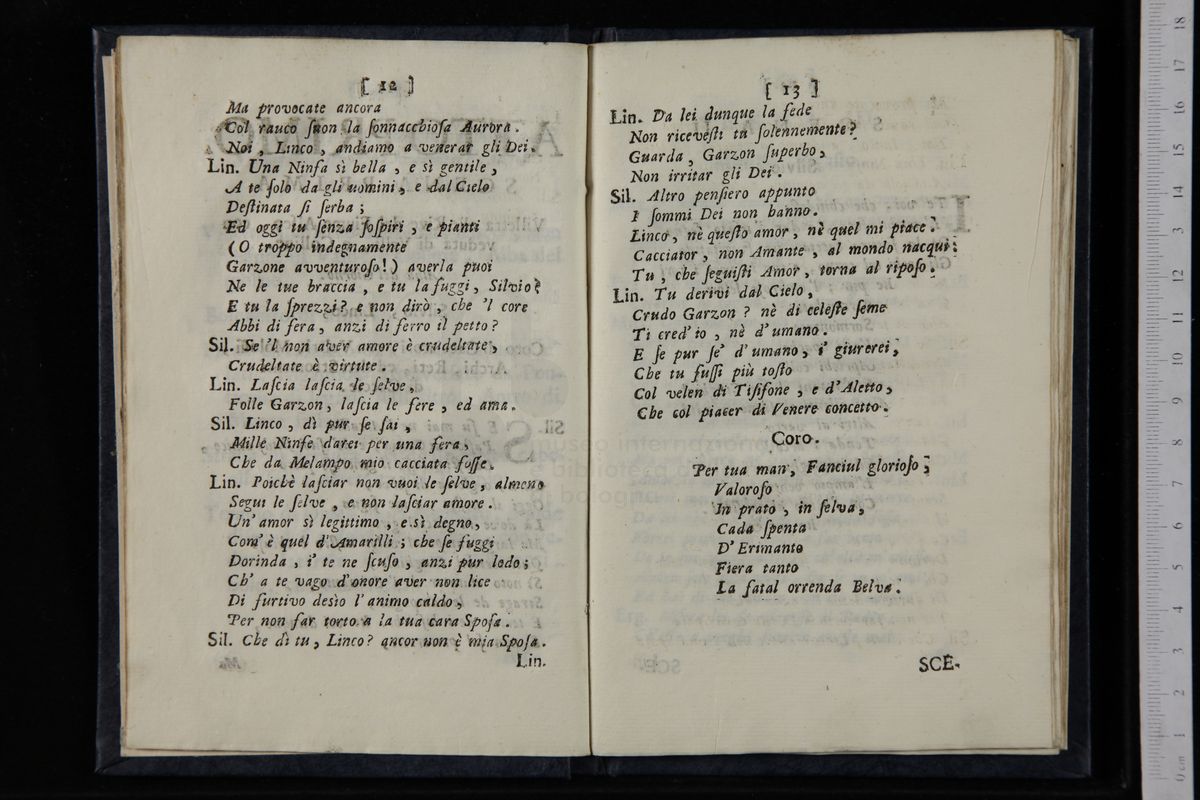 [ 12 ]
Ma provocate ancora
Col rauco ſuon la ſonnacchioſa Aurora.
Noi, Linco, andiamo a venerar gli Dei.
Lin. Una Ninfa sì bella, e sì gentile,
A te ſolo da gli uomini, e dal Cielo
Deſtinata ſi ſerba;
Ed oggi tu ſenza ſoſpiri, e pianti
(O troppo indegnamente
Garzone avventuroſo!) averla puoi
Ne le tue braccia, e tu la fuggi, Silvio?
E tu la ſprezzi? e non dirò, che 'l core
Abbi di fera, anzi di ferro il petto?
Sil. Se 'l non aver amore è crudeltate,
Crudeltate è virtute.
Lin. Laſcia laſcia le ſelve,
Folle Garzon, laſcia le fere, ed ama.
Sil. Linco, dì pur ſe ſai,
Mille Ninfe darei per una fera,
Che da Melampo mio cacciata foſſe.
Lin. Poichè laſciar non vuoi le ſelve, almeno
Segui le ſelve, e non laſciar amore.
Un' amor sì legittimo, e sì degno,
Com' è quel d'Amarilli; che ſe fuggi
Dorinda, i' te ne ſcuſo, anzi pur lodo;
Ch' a te vago d'onore aver non lice
Di furtivo desìo l'animo caldo,
Per non far torto a la tua cara Spoſa.
Sil. Che dì tu, Linco? ancor non è mia Spoſa.
Lin.
[ 13 ]
Lin. Da lei dunque la fede
Non riceveſti tu ſolennemente?
Guarda, Garzon ſuperbo,
Non irritar gli Dei.
Sil. Altro penſiero appunto
I ſommi Dei non hanno.
Linco, nè queſto amor, nè quel mi piace.
Cacciator, non Amante, al mondo nacqui:
Tu, che ſeguiſti Amor, torna al ripoſo.
Lin. Tu derivi dal Cielo,
Crudo Garzon? nè di celeſte ſeme
Ti cred' io, nè d'umano.
E ſe pur ſe' d'umano, i' giurerei,
Che tu fuſſi più toſto
Col velen di Tiſifone, e d'Aletto,
Che col piacer di Venere concetto.
Coro.
Per tua man, Fanciul glorioſo,
Valoroſo
In prato, in ſelva,
Cada ſpenta
D' Erimanto
Fiera tanto
La fatal orrenda Belva.
SCE-